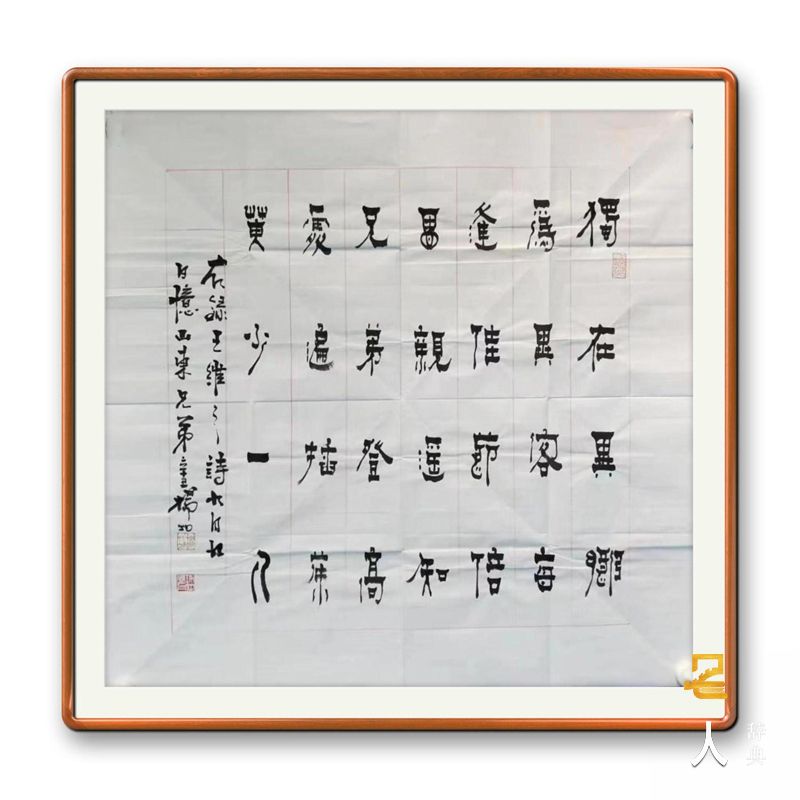 獨在異鄉
爲異客每
逢佳節倍
思親遥知
兄弟登高
處遍插茱
萸少一人
右録王維之詩九月九
日憶山東兄弟
名人
辞典